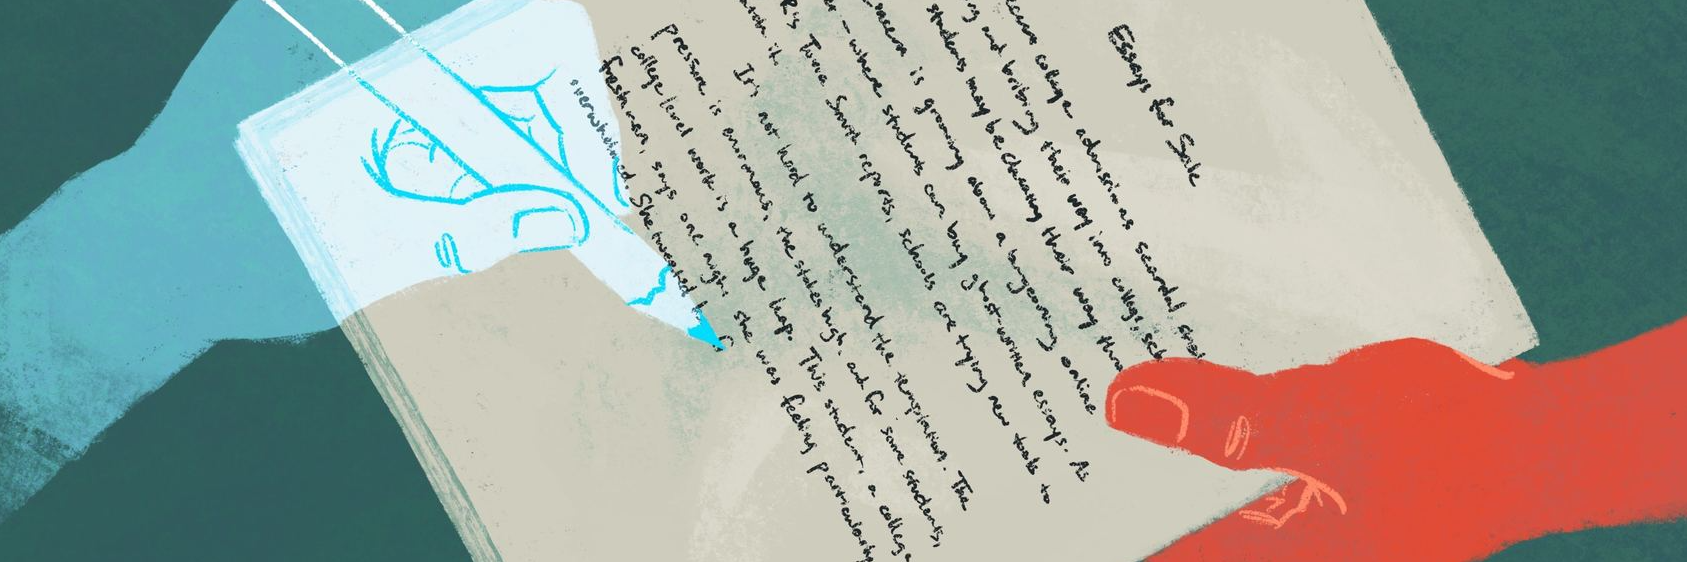 Essays for Sale
college admissions scandal,
and bribing their way into college,
students may be cheating their way
is growing a burgeoning online
– where students can buy ghost-written essays. As
Tovia Smith reports, schools are trying new tools to
it.
It's not hard to understand the temptation. The
pressure is enormous, the stakes high, and for some students,
college level work is a huge leap. This student, a college
freshman, says one night she was feeling particularly
overwhelmed. She tweeted